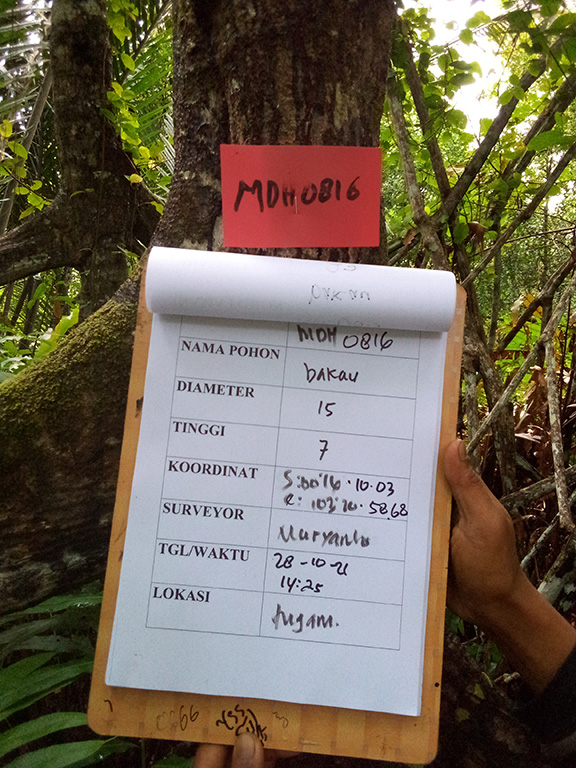 MDH0816
MDH 0816
NAMA POHON bakau
DIAMETER 15
TINGGI 7
KOORDINAT S:00°16·10.03
E: 103°20·58.68
SURVEYOR Nuryanto
TGL/WAKTU 28-10-21
14:25
LOKASI